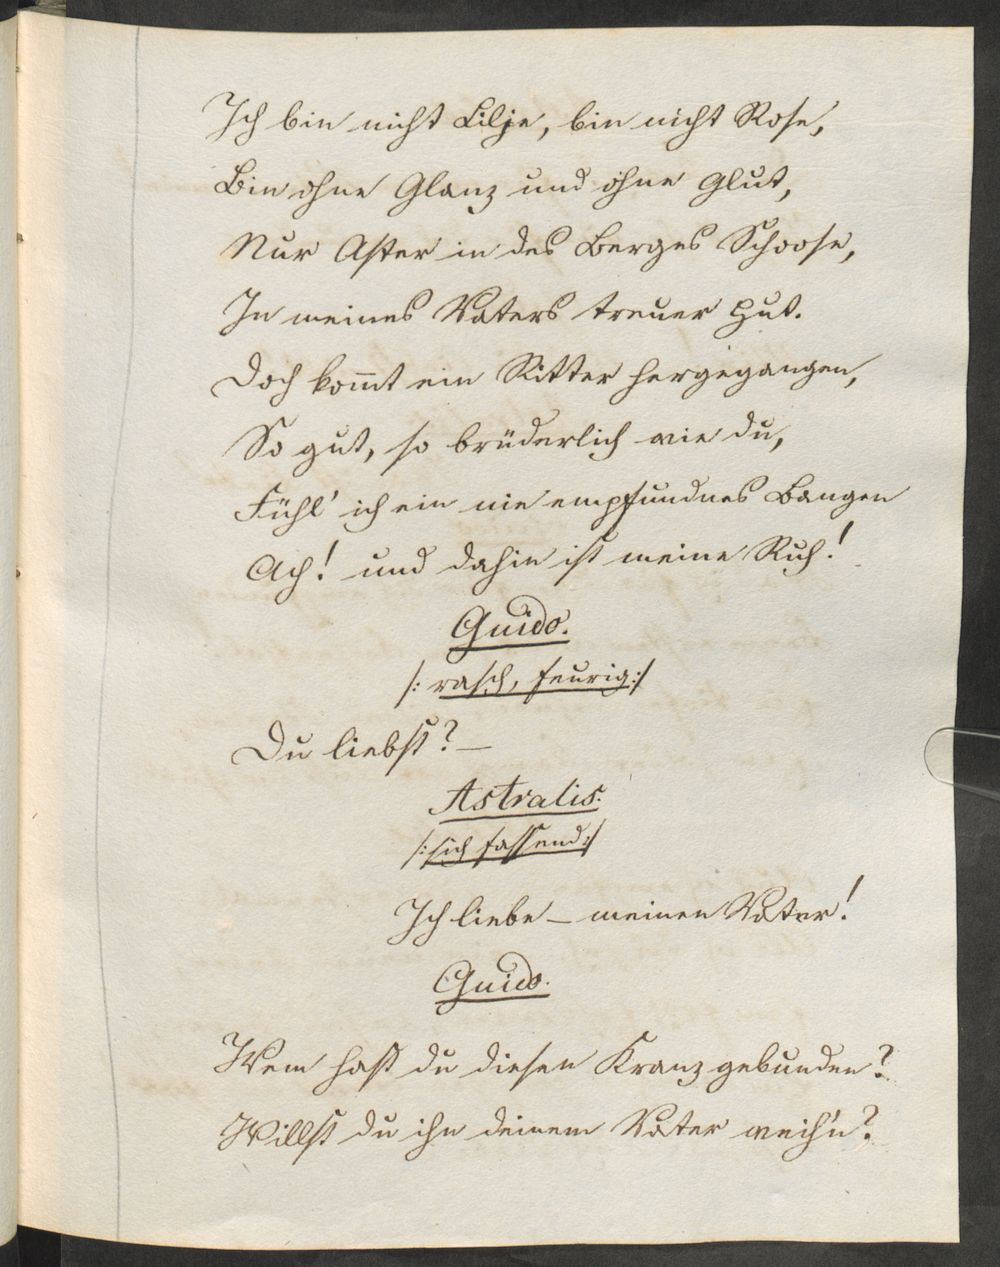 Ich bin nicht Lilje, bin nicht Rose,
Bin ohne Glanz und ohne Glut,
Nur Aster in des Berges Schoose,
In meines Vaters treuer Hut.
Doch kom̄t ein Ritter hergegangen,
So gut, so brüderlich wie du,
Fühl' ich ein nie empfundnes Bangen
Ach! und dahin ist meine Ruh!
Guido.
/: rasch, feurig :/
Du liebst? —
Astralis.
/: sich fassend :/
Ich liebe — meinen Vater!
Guido.
Wem hast du diesen Kranz gebunden?
Willst du ihn deinem Vater weih'n?